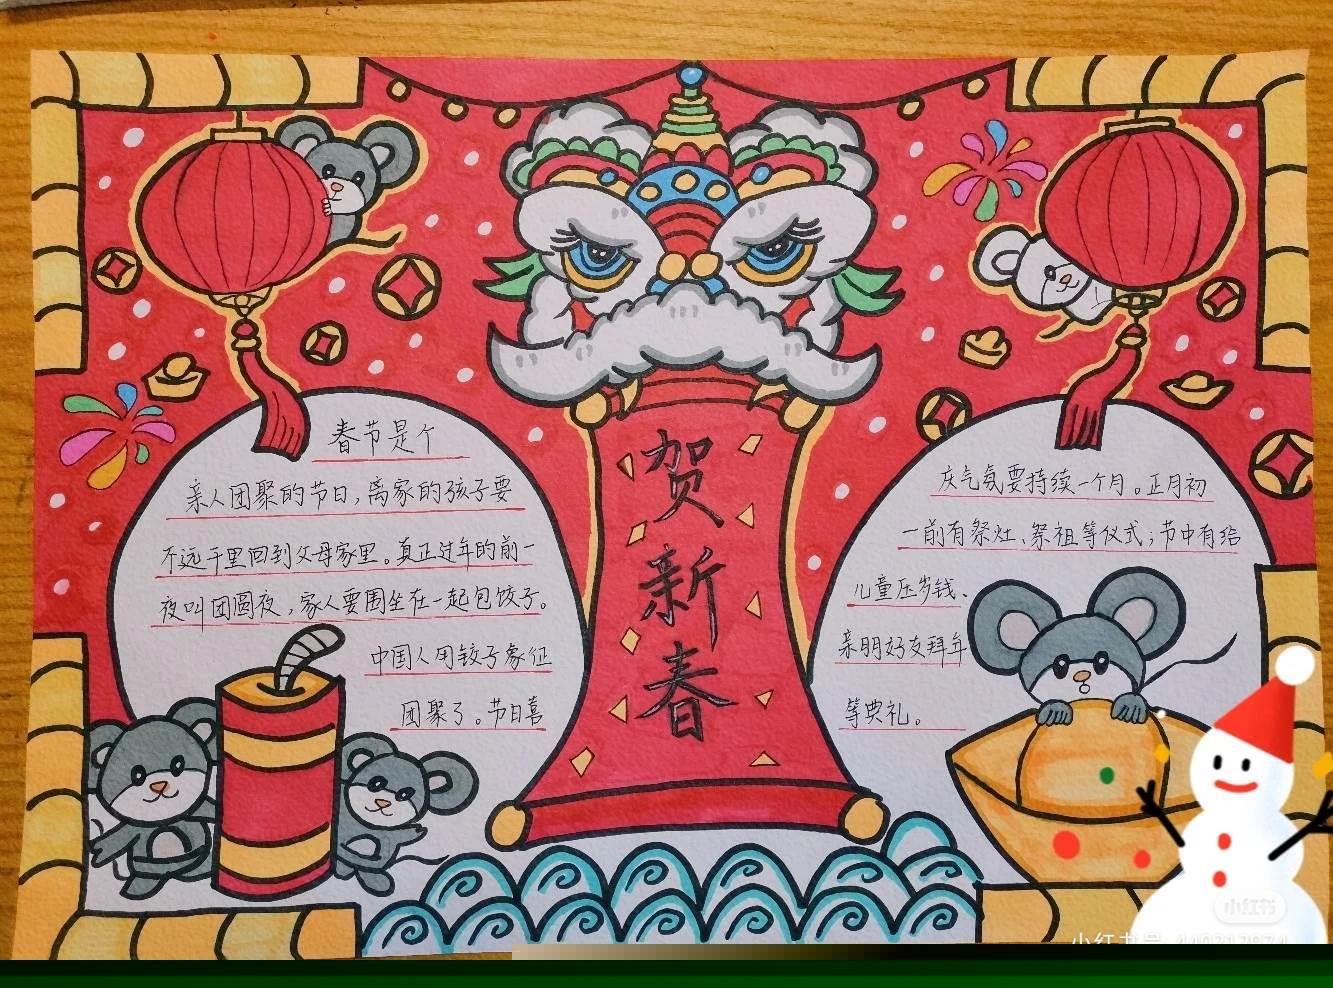 贺新春
春节是个
亲人团聚的节日，离家的孩子要
不远千里回到父母家里。真正过年的前一
夜叫团圆夜，家人要围坐在一起包饺子。
中国人用饺子象征
团聚了。节日喜
庆气氛要持续一个月。正月初
一前有祭灶、祭祖等仪式；节中有给
儿童压岁钱、
亲朋好友拜年
等典礼。
小红书